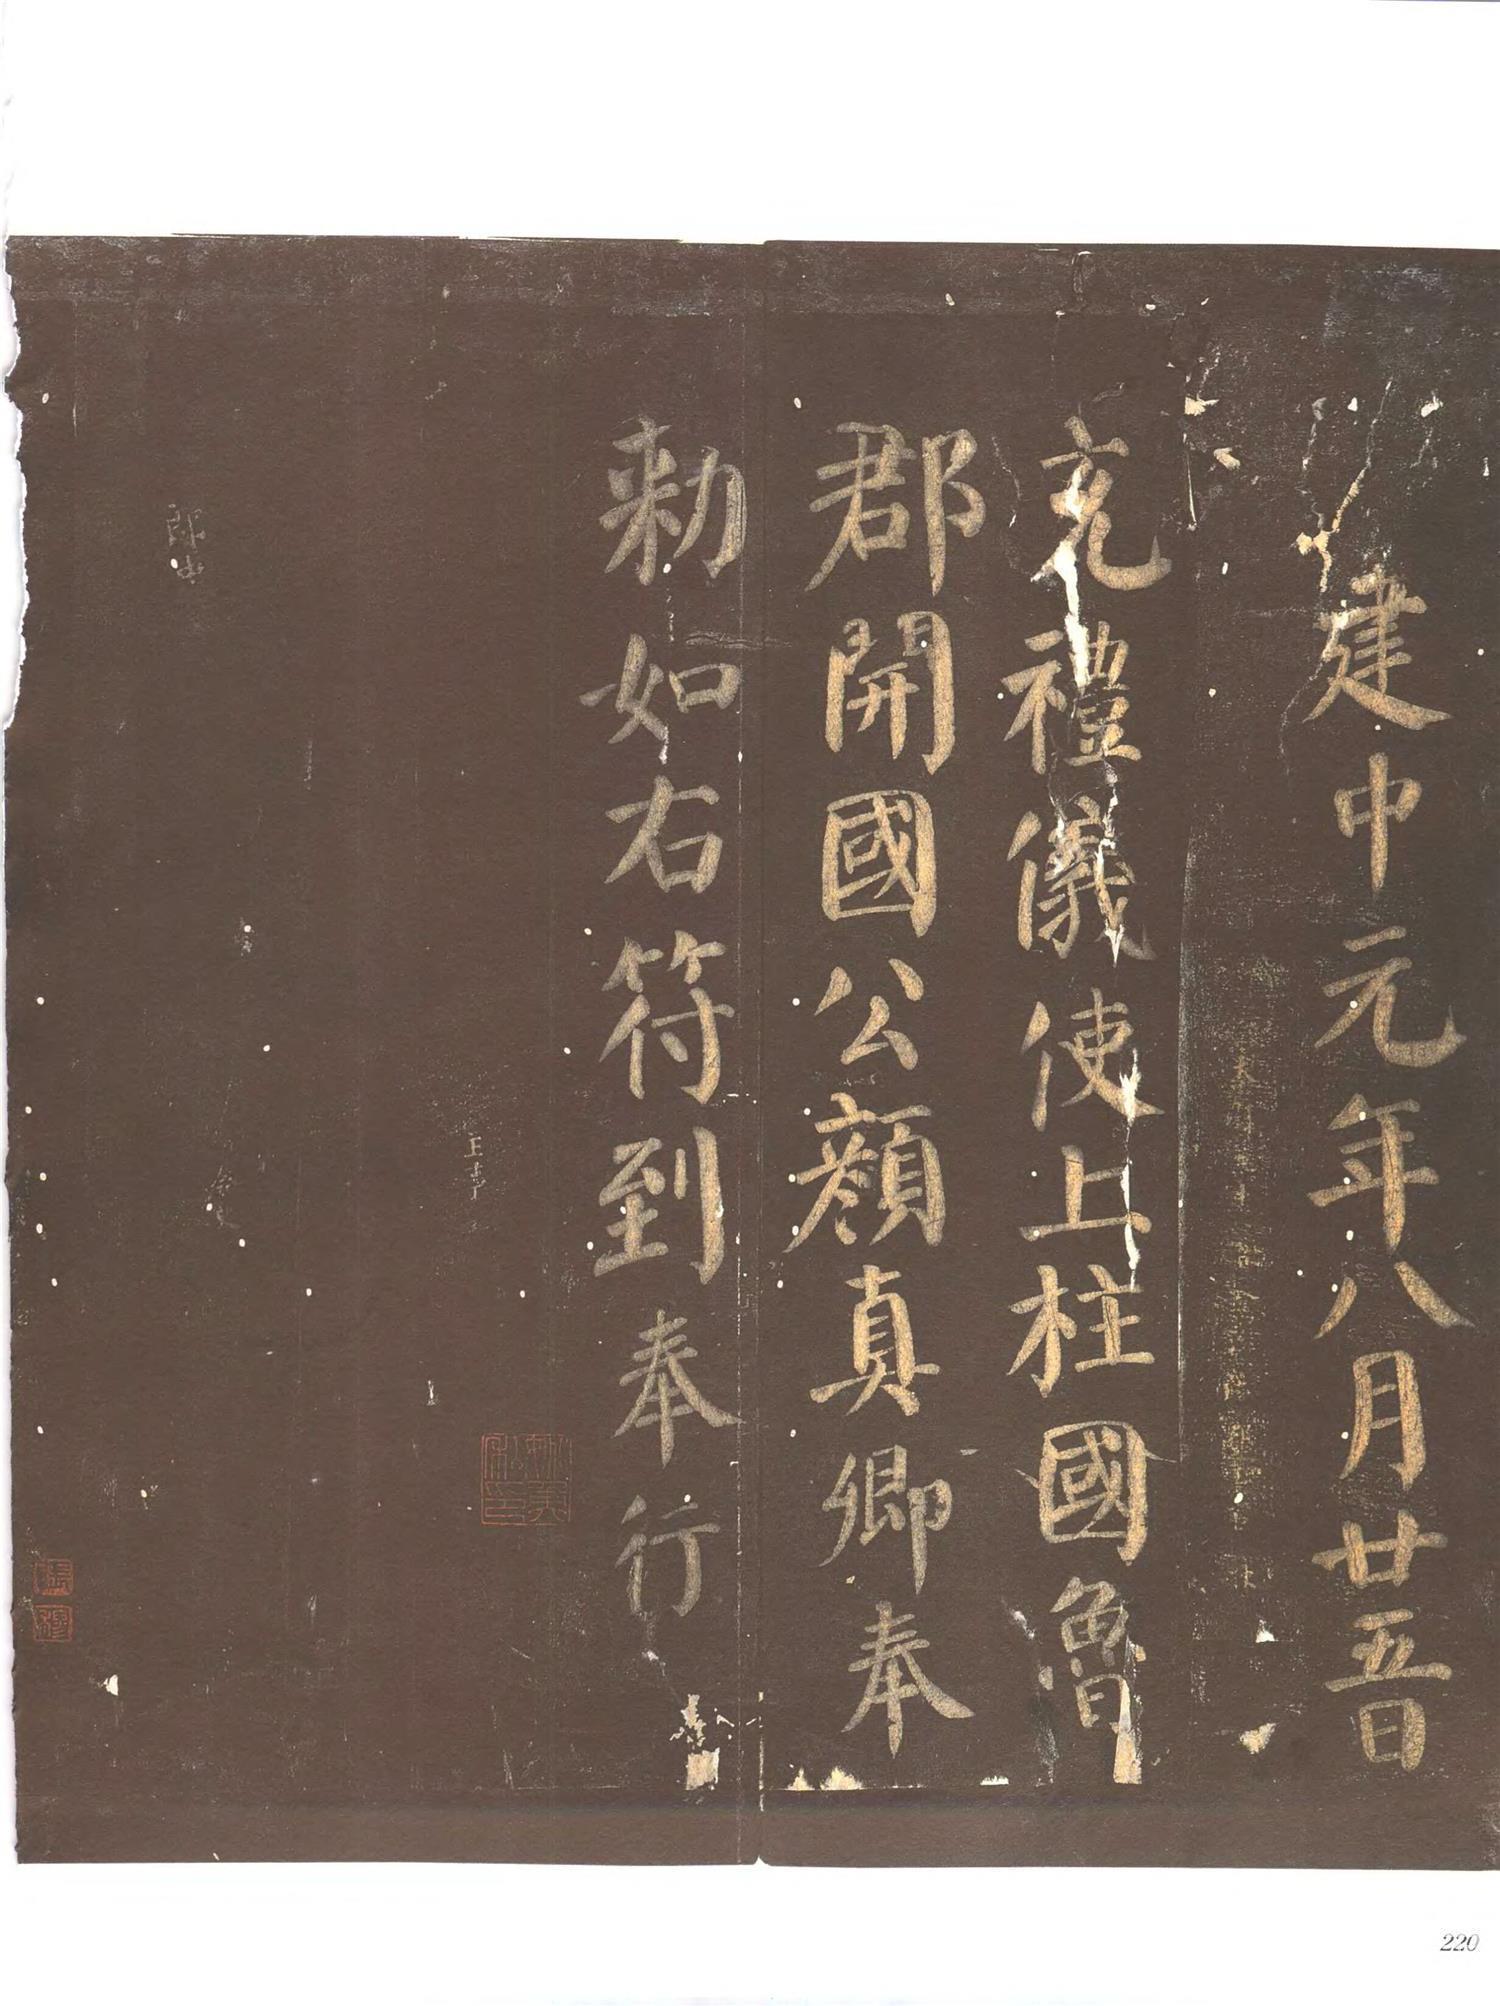 建中元年八月廿五日
充禮儀使上柱國魯
郡開國公顏真卿奉
勑如右符到奉行
郎中
220